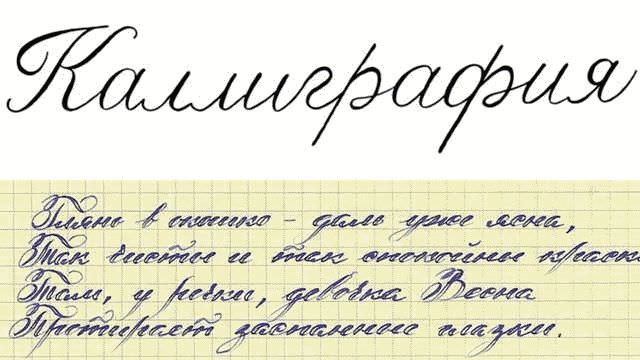 Каллиграфия
Глянь в окошко – даль уже ясна,
Так чисты и так спокойны краски
Там, у речки, девочка Весна
Протирает заспанные глазки.